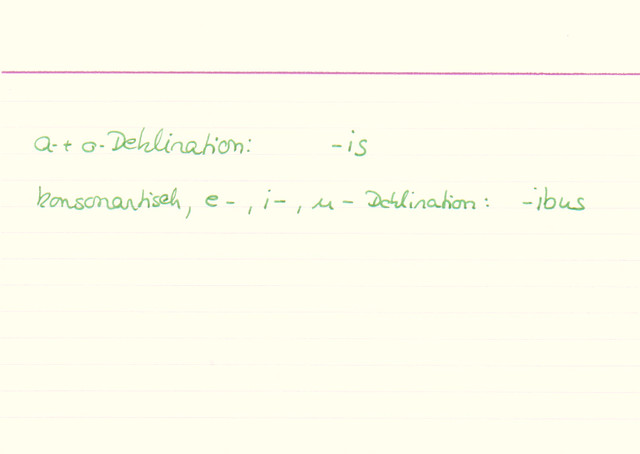 a- + o- Deklination: -is
konsonantisch, e-, i-, u- Deklination: -ibus